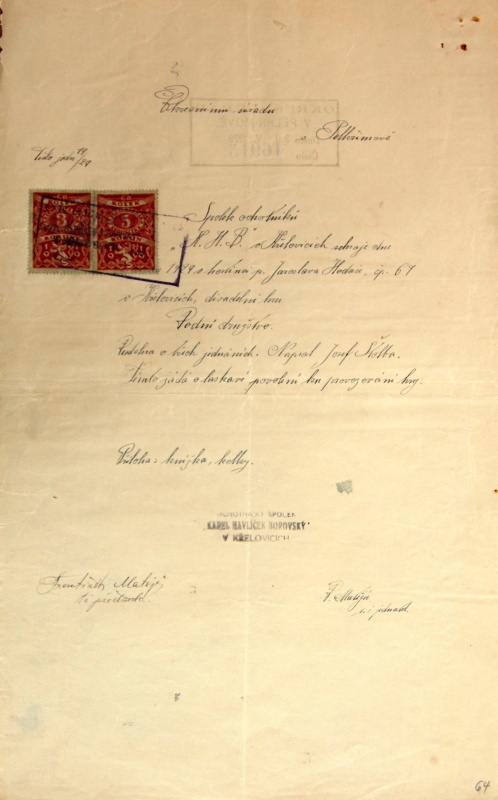 Okresnímu úřadu
v Pelhřimově
Číslo jedn 19/29
KOLEK KOLEK
3 5
KORUNY KORUN
Spolek ochotníků
„K. H. B." v Křelovicích sehraje dne
1929 v hostinci p. Jaroslava Hodač, č. 67
v Křelovicích, divadelní hru
Vodní družstvo.
Veselohra o třech jednáních. Napsal Josef Štolba.
Tímto žádá o laskavé povolení ku provozování hry.
Příloha: knížka, kolky.
OCHOTNICKÝ SPOLEK
„KAREL HAVLÍČEK BOROVSKÝ"
V KŘELOVICÍCH
František Matějů
P. Matějů
t. č. jednatel.
64